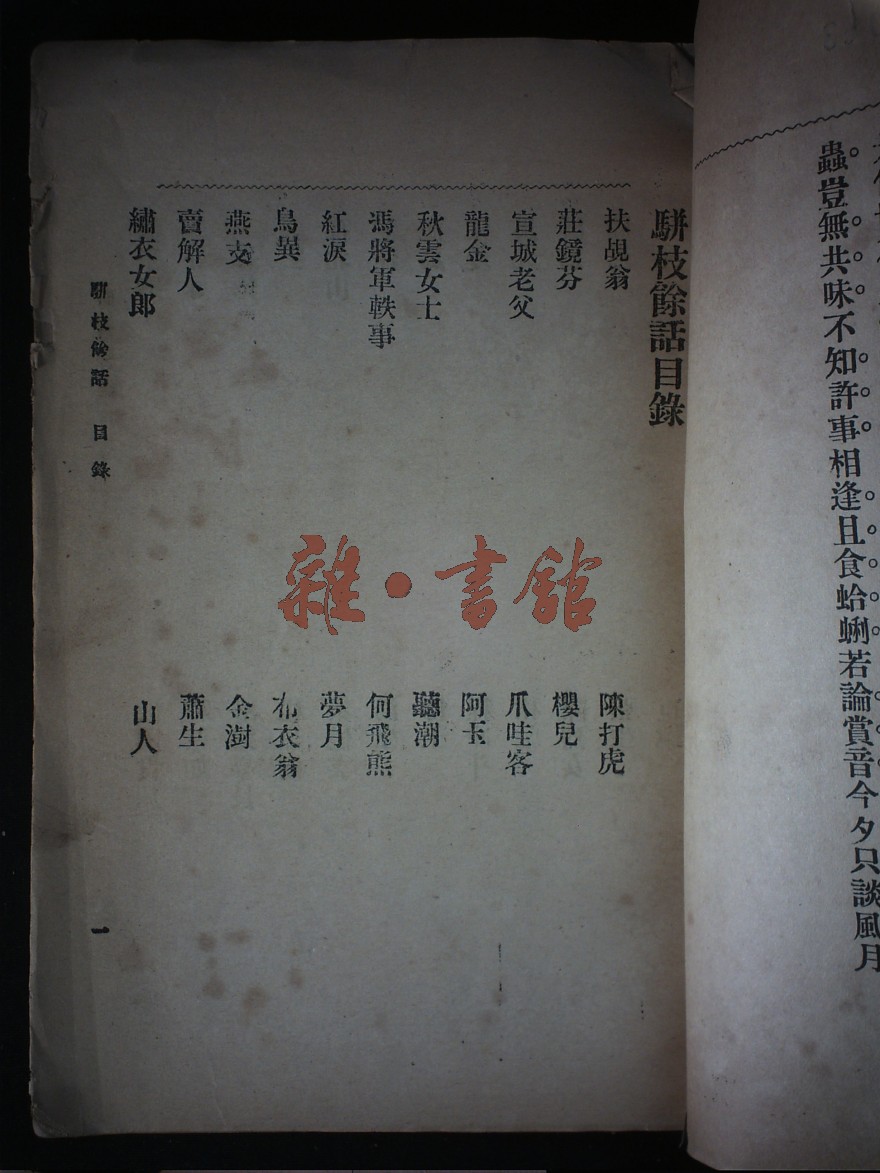 蟲豈無共味不知許事相逢且食蛤蜊若論賞音今夕只談風月
駢枝餘話目錄
扶覘翁
陳打虎
莊鏡芬
櫻兒
宣城老父
爪哇客
龍金
阿玉
秋雲女士
聽潮
馮將軍軼事
何飛熊
紅淚
夢月
鳥異
布衣翁
燕支
金澍
賣解人
蕭生
繡衣女郎
山人
駢枝餘話 目錄
一
雜·書館